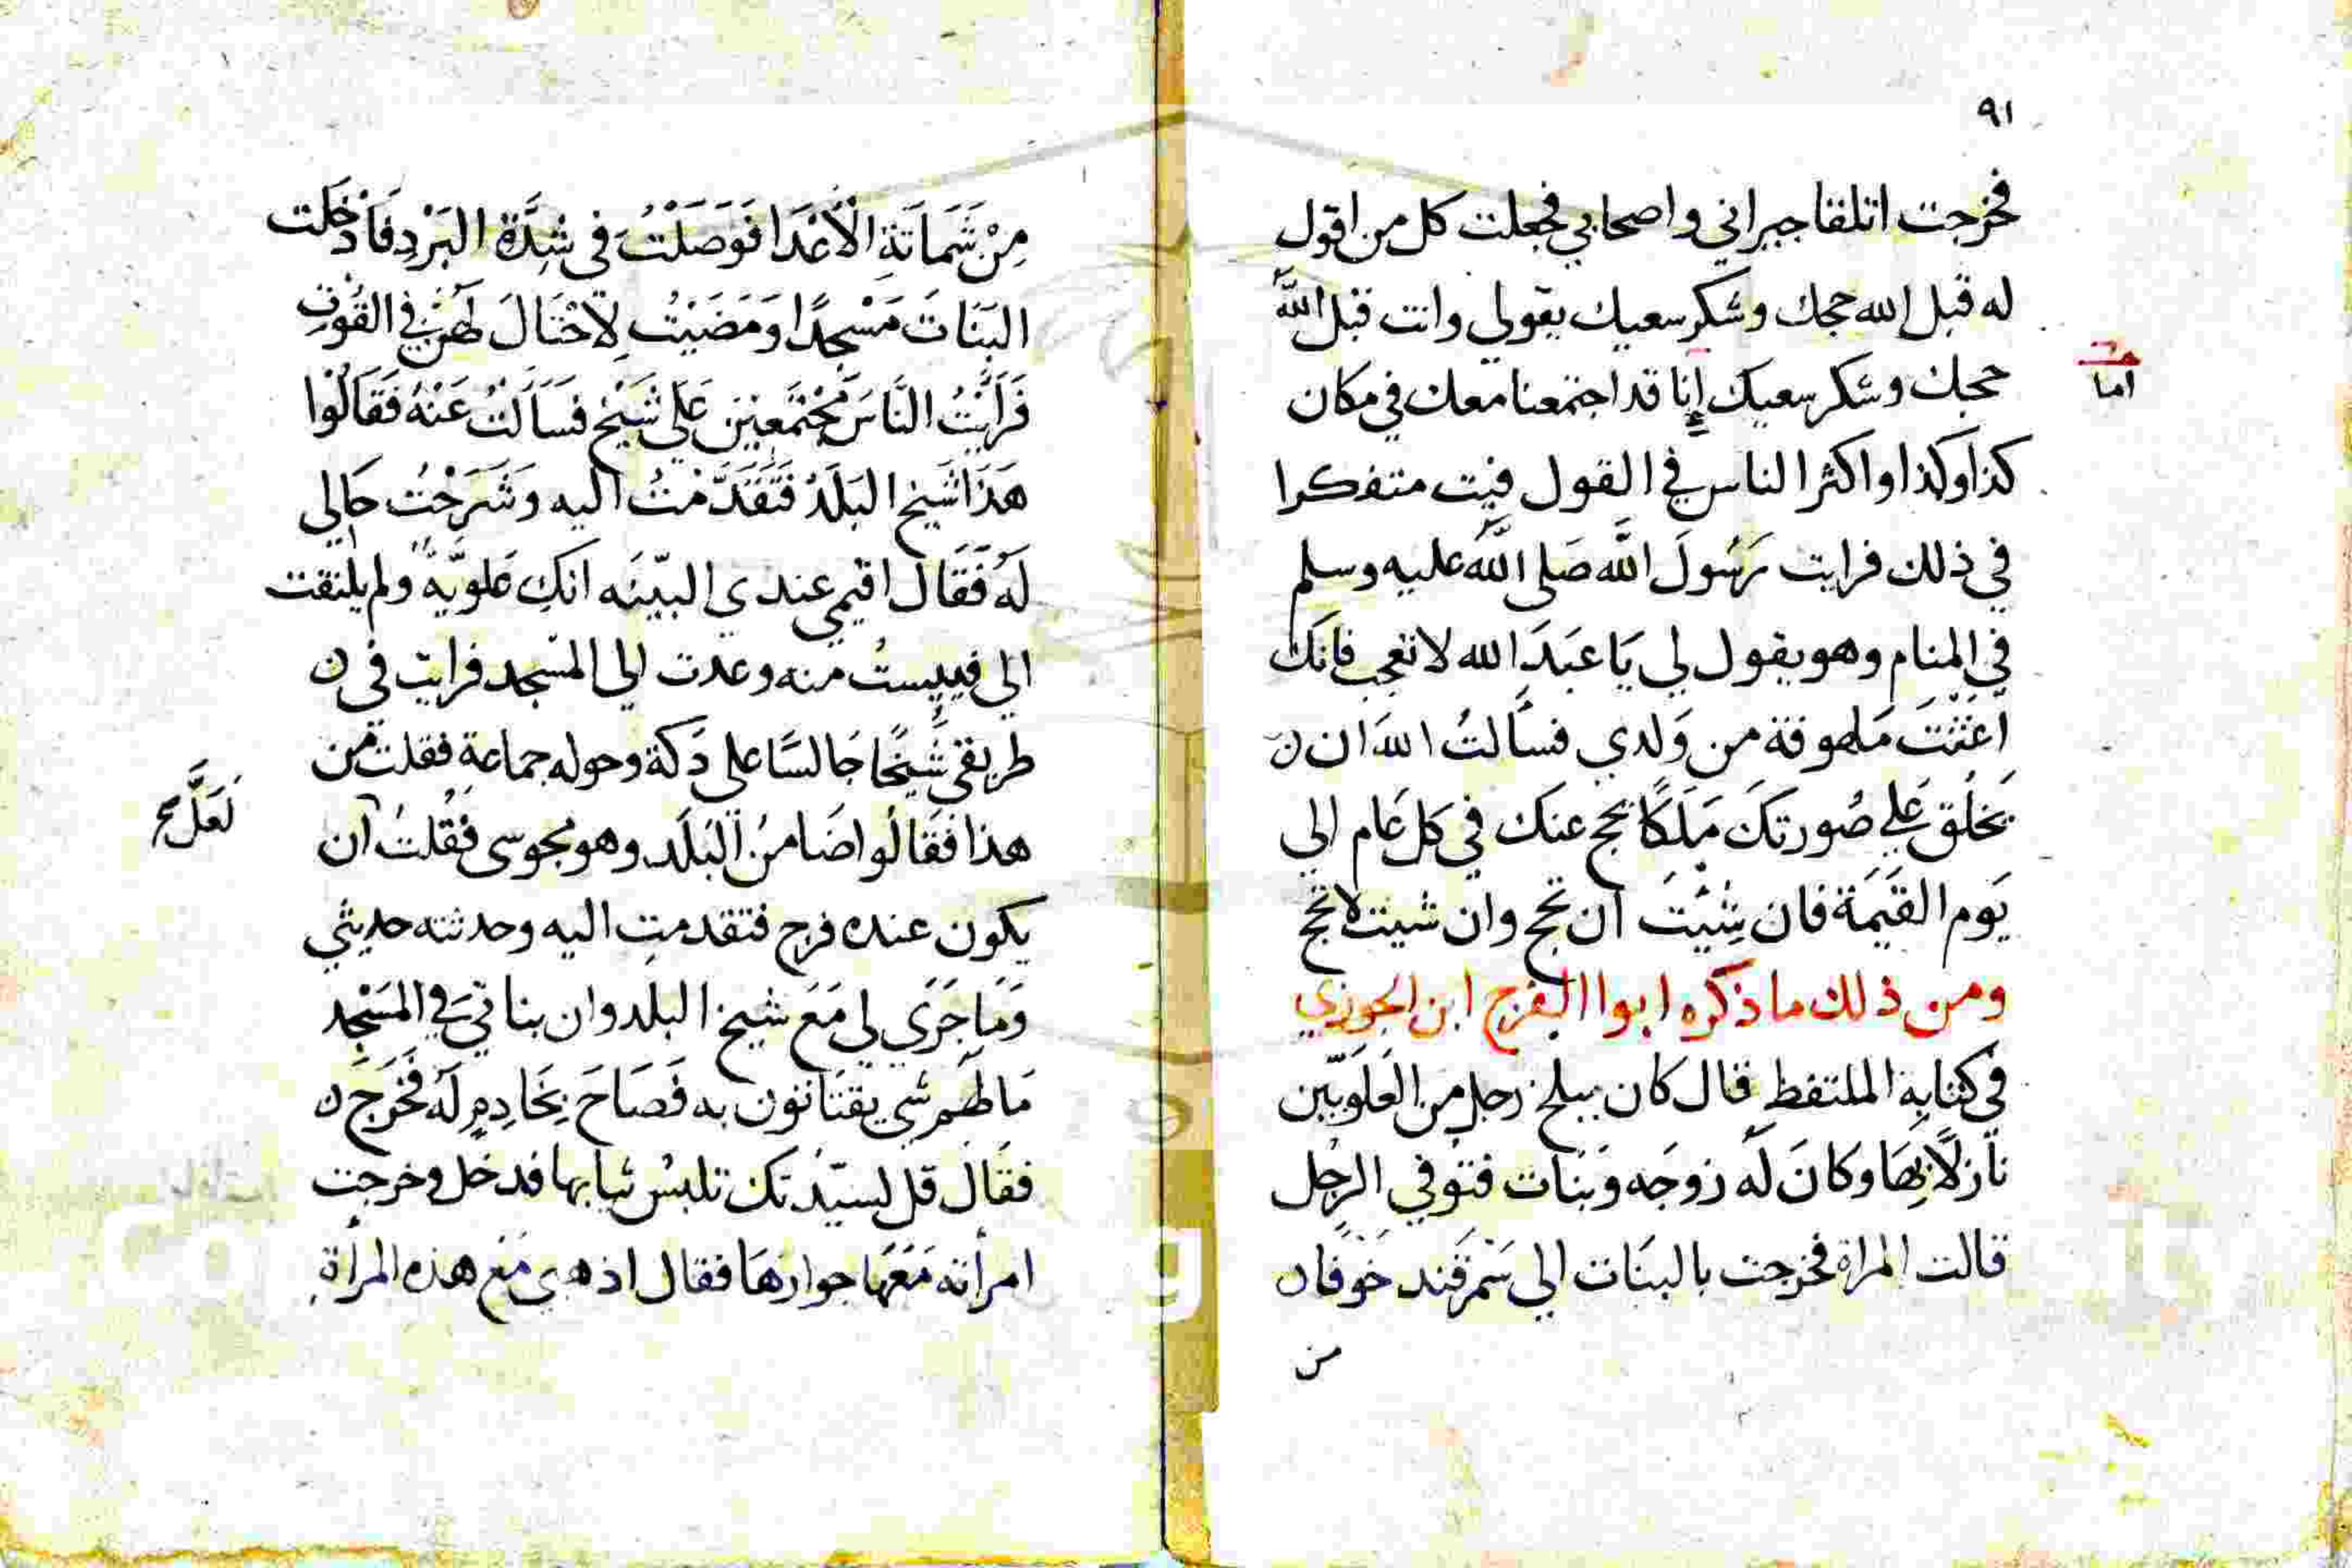 ٩١
فخرجت اتلقا جيراني واصحابي فجعلت كل من اقول
له قبل الله حجك وشكر سعيك يقولي وانت قبل الله
حجك وشكر سعيك إنا قد اجتمعنا معك في مكان
اما
كذا وكذا واكثر الناس في القول فبت متفكرا
في ذلك فرايت رَسُولَ اللَّه صَلى اللَّه عليه وسلم
في المنام وهو يقول لي يَا عَبدَ الله لا تعجب فانك
اَغَثْتَ مَلهوفة من وَلدي فسَألتُ اللهَ ان
يَخلُق عَلي صُورتكَ مَلَكًا يحج عنك في كل عَام الي
يَوم القيَمَة فان شِئْتَ ان تحج وان شيت لا تحج
ومن ذلك ما ذكره ابوا الفرج ابن الجوزي
في كتابه الملتفط قال كان ببلخ رجل من العَلَويّين
نَازلًا بهَا وكَانَ لَه زوجَه وَبَنَات فتوفي الرجُل
قالت المراة فخرجت بالبنَات الي سَمرقَند خَوفًا
من
مِنْ شَمَاتَةِ الأَعْدَا فَوَصَلْتُ في شِدَّة البَرْدِ فَأَدْخَلت
البَنَاتَ مَسْجِدًا وَمَضَيْتُ لِاحْتَالَ لَهُنَّ في القُوْتِ
فَرَأَيْتُ النَّاسَ مُجْتَمَعِيْنَ عَلي شَيْخٍ فَسَأَلتُ عَنْهُ فَقَالُوْا
هَذَا شَيخ البَلَدْ فَتَقَدَّمْتُ اليه وَشَرَحْتُ حَالي
لَهُ فَقَالَ اقيمي عندي البيّنَه انكِ عَلويَّةً ولم يلتفت
الي فييستُ منه وعدت الي المسْجد فرايت في
طريقي شَيْخًا جَالسًا علي دَكة وحوله جماعة فقلت من
هذا فقَالُوا ضَامنُ البَلَد وهو مجوسي فقُلتُ ان
لَعَلَّ
يكون عنده فرج فتقدمت اليه وحدثته حديثي
وَمَا جَرَي لي مَعَ شيخ البلد وان بناتي في المَسْجِد
مَا لهَم شي يقتَاتون به فَصَاحَ بِخَادِمٍ لَه فَخَرَجَ
فقَالَ قل لسيّدتك تلبسْ ثيابها فدخل وخرجت
امرأته مَعَهَا جوارهَا فقال اذهبي مَعَ هذه المرأة